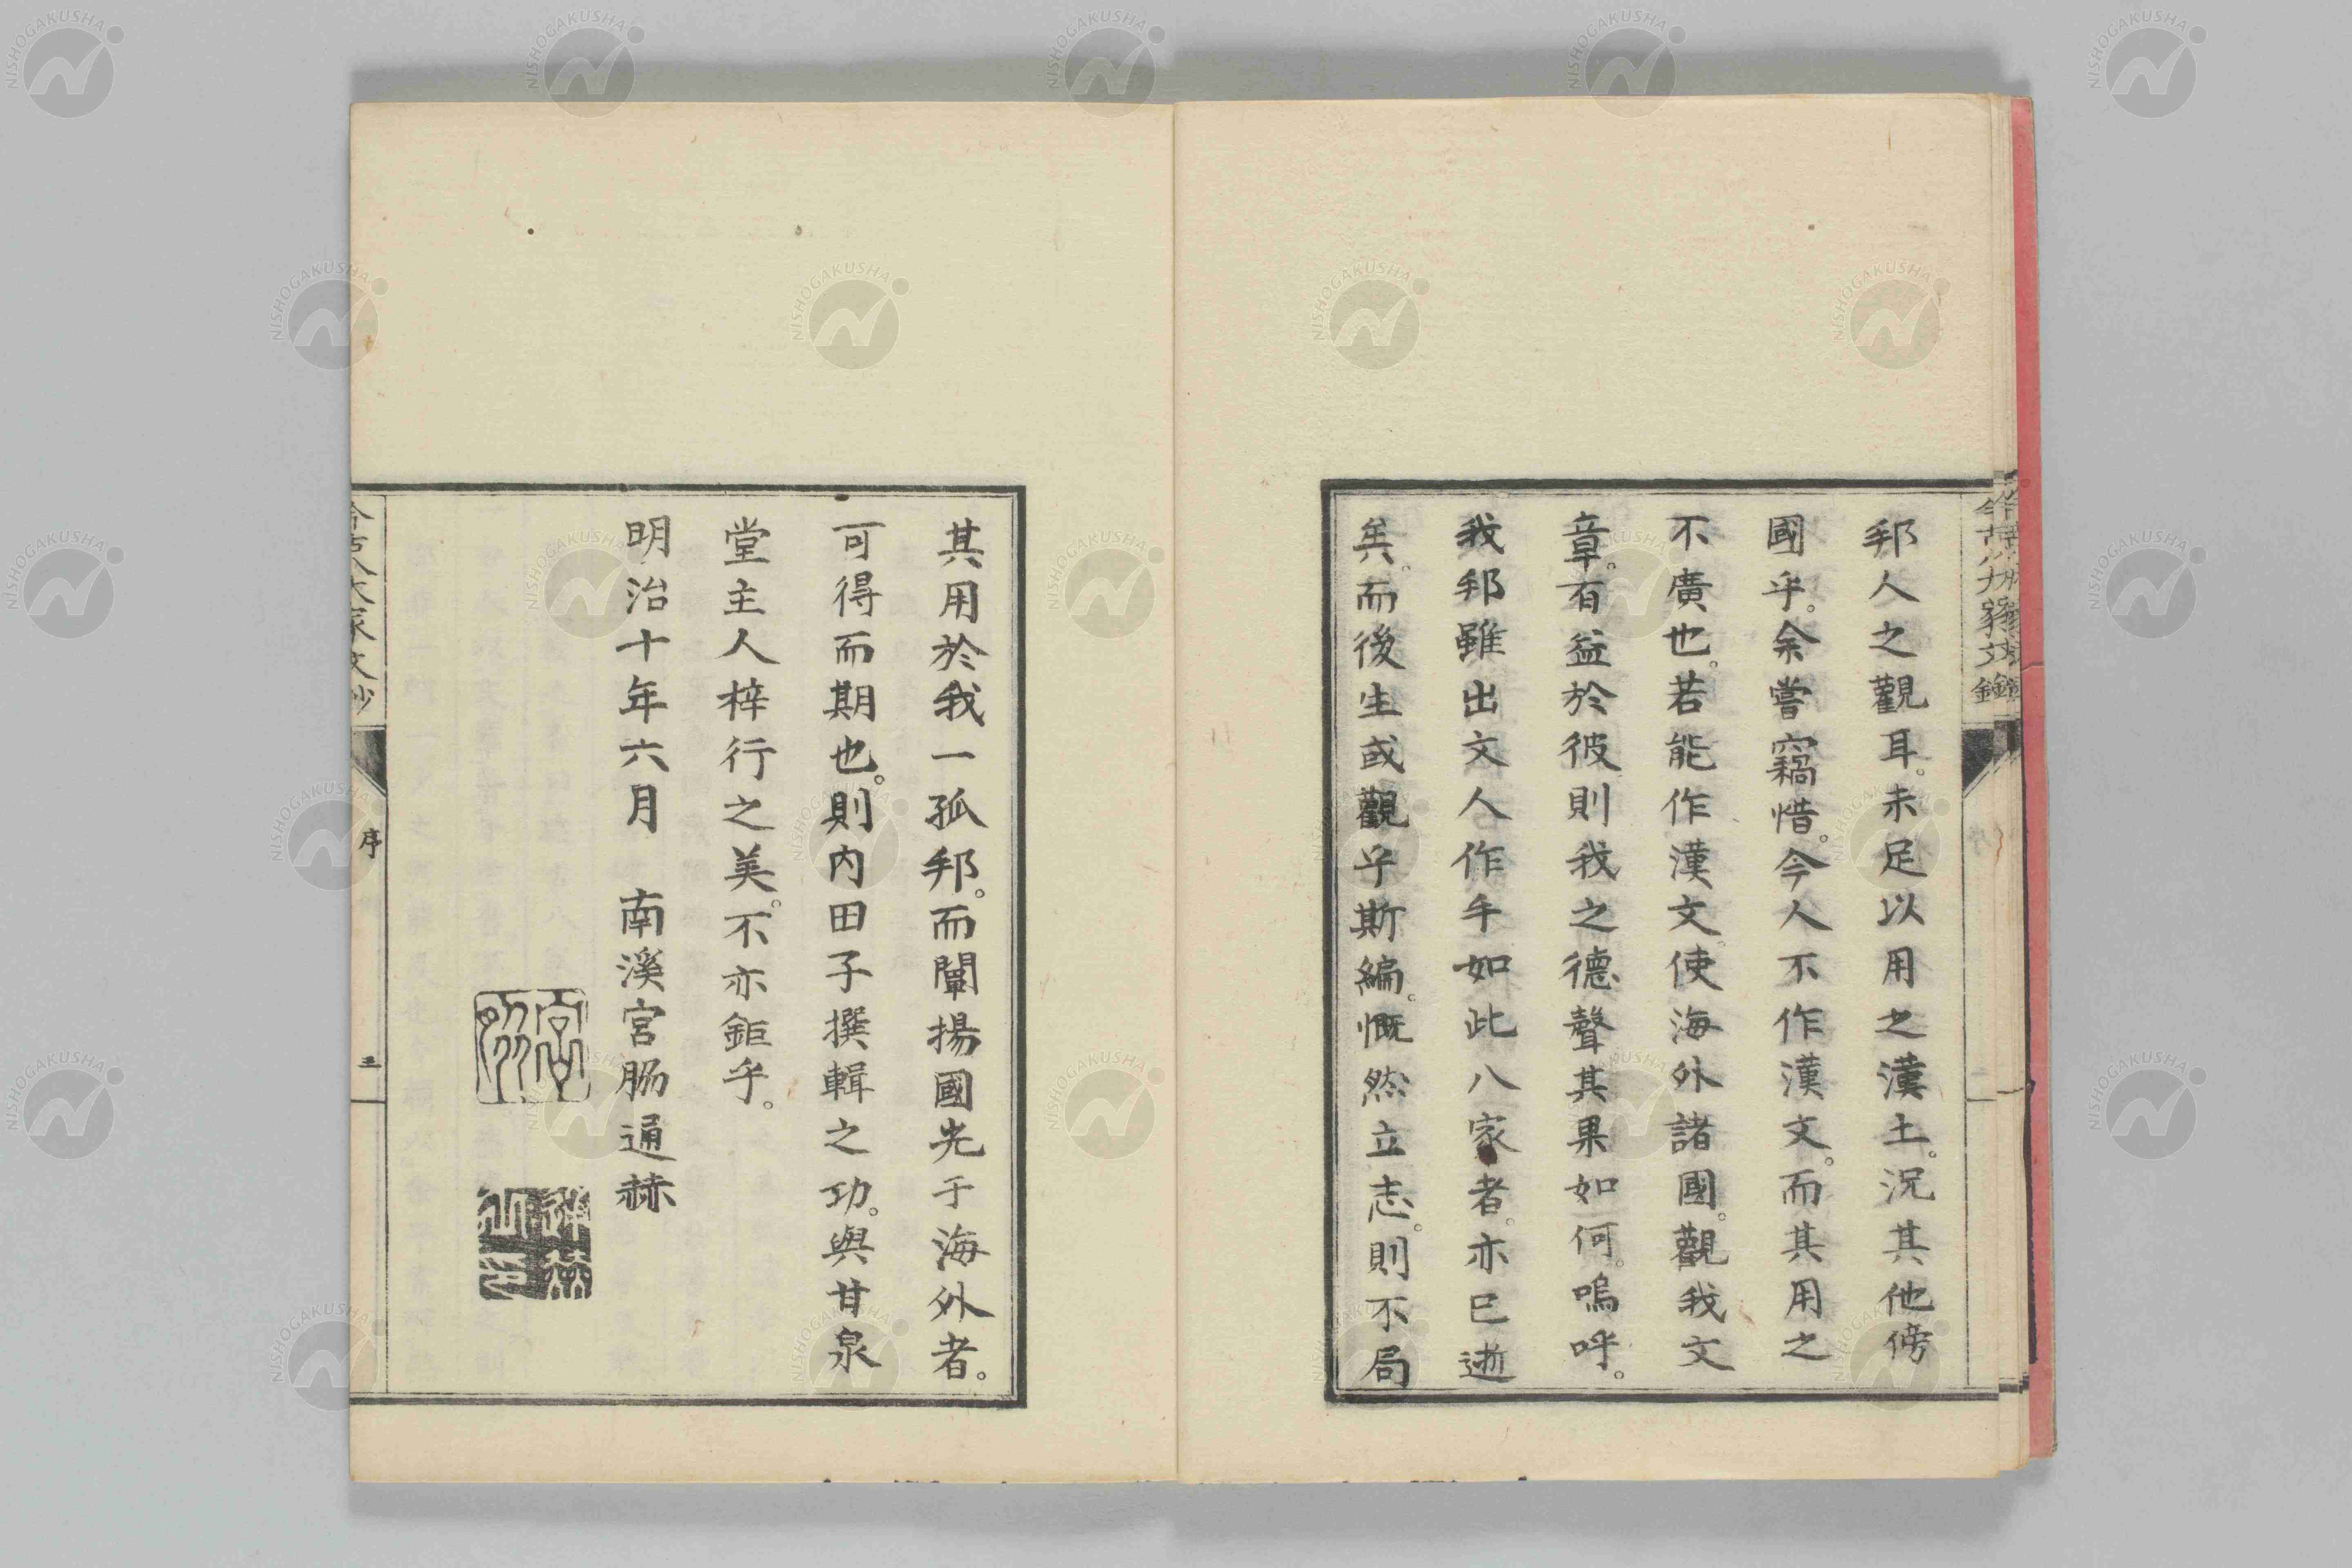 邦人之觀耳。未足以用之漢土。況其他傍
國乎。余嘗竊惜。今人不作漢文。而其用之
不廣也。若能作漢文。使海外諸國。觀我文
章。有益於彼則我之德聲其果如何。嗚呼。
我邦雖出文人作手如此八家者。亦已逝
矣。而後生或觀乎斯編。慨然立志。則不局
其用於我一孤邦。而闡揚國光于海外者。
可得而期也。則内田子撰輯之功。與甘泉
堂主人梓行之美。不亦鉅乎。
明治十年六月 南溪宮脇通赫
序
NISHOGAKUSHA